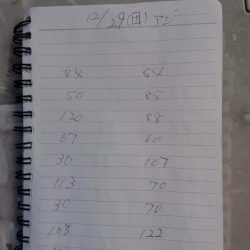 12/29(日) アジ
54 54
50 85
120 88
67 60
30 107
113 70
30 70
108 122